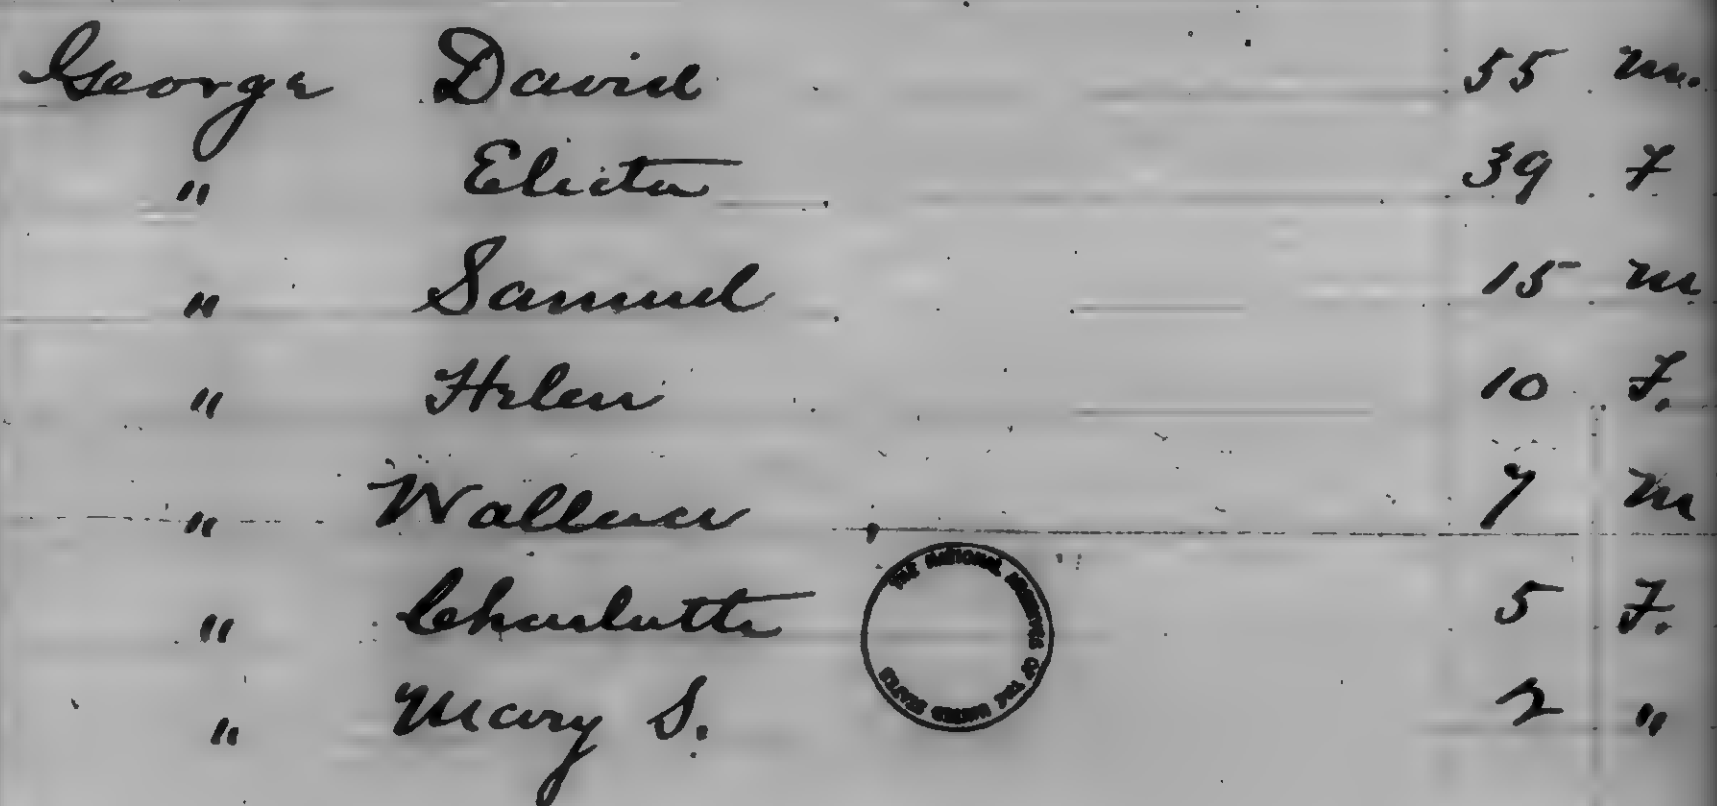 George David 55 m.
" Elicta 39 F
" Samuel 15 m
" Helen 10 F.
" Wallace 7 m
" Charlotte 5 F.
" Mary S. 2 "
THE NATIONAL ARCHIVES OF THE UNITED STATES